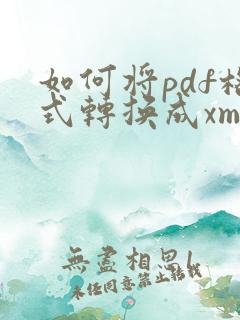 如何将pdf格
式轉换成xm
無盡相思l
未经同意禁止转载